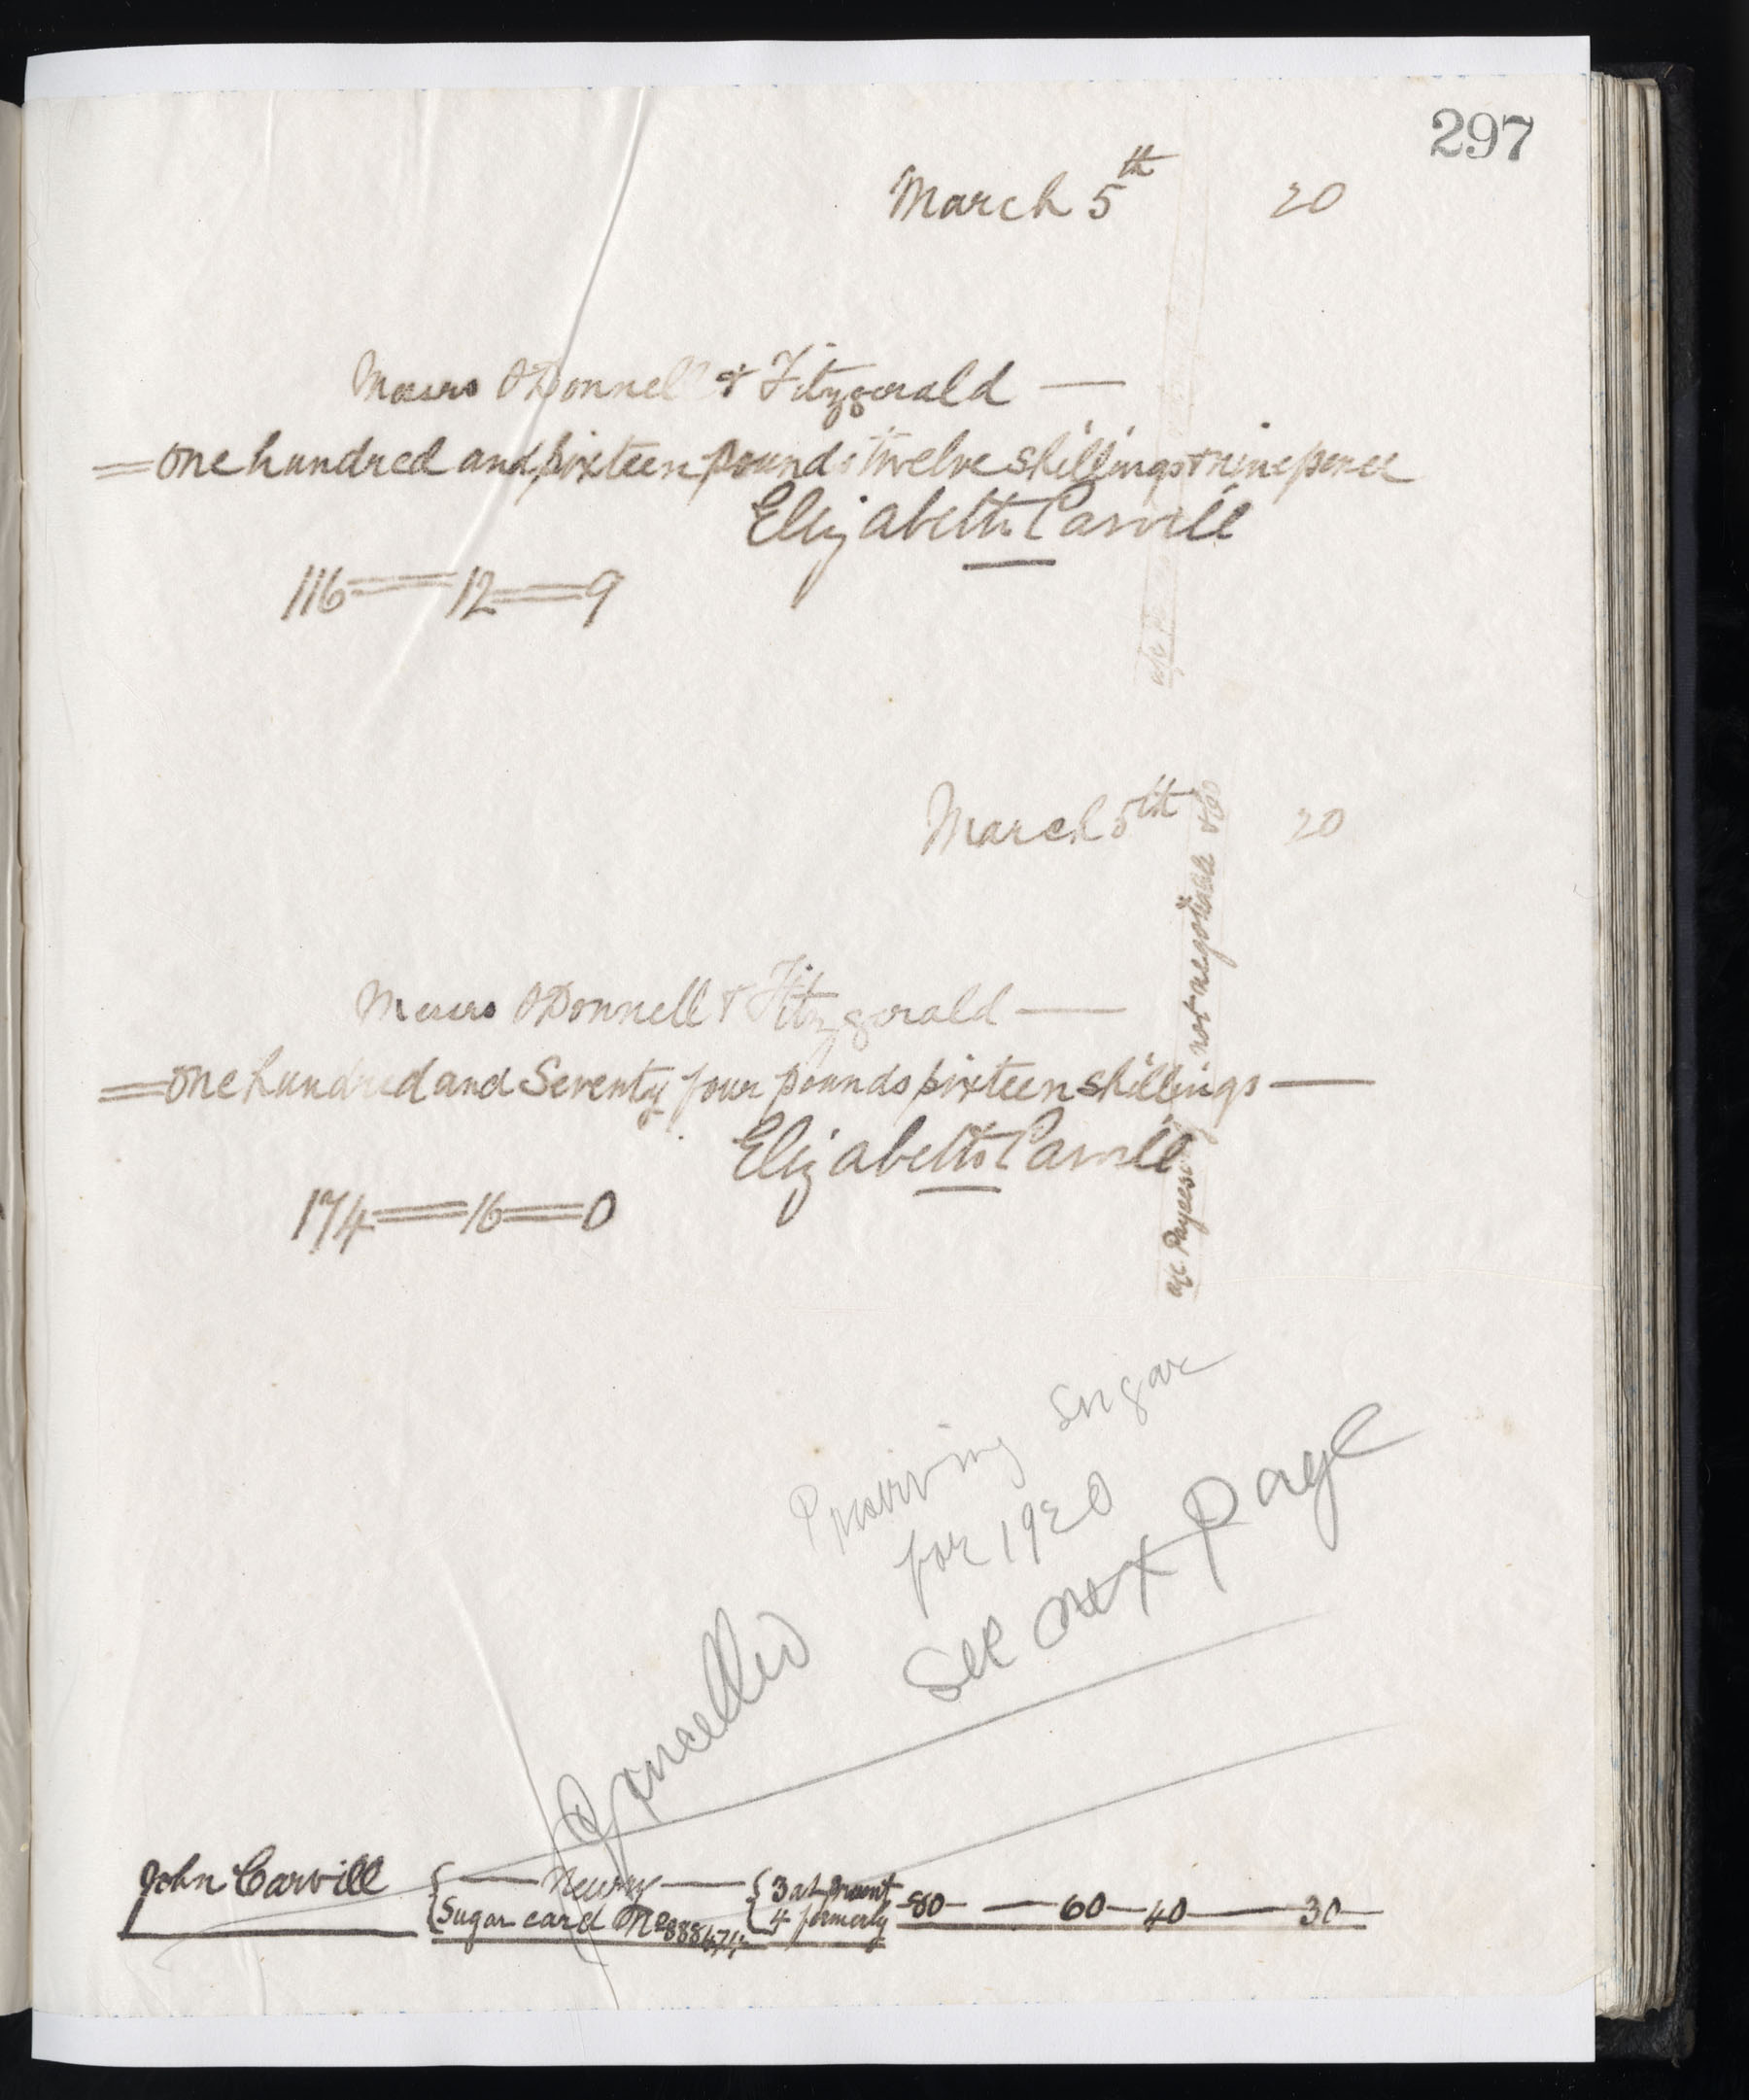 297
March 5th 20
Messrs O'Donnell & Fitzgerald —
= one hundred and sixteen pounds twelve shillings & nine pence
Elizabeth Carvill
116 = 12 = 9
March 5th 20
a/c Payees not negotiable
Messrs O'Donnell & Fitzgerald —
= one hundred and Seventy four pounds sixteen shillings —
Elizabeth Carvill
174 = 16 = 0
Preserving Sugar
for 1920
See next page
Cancelled
John Carvill { — Newry — { 3 at present 80 — — 60 — 40 — 30 —
{ Sugar card No { 4 formerly